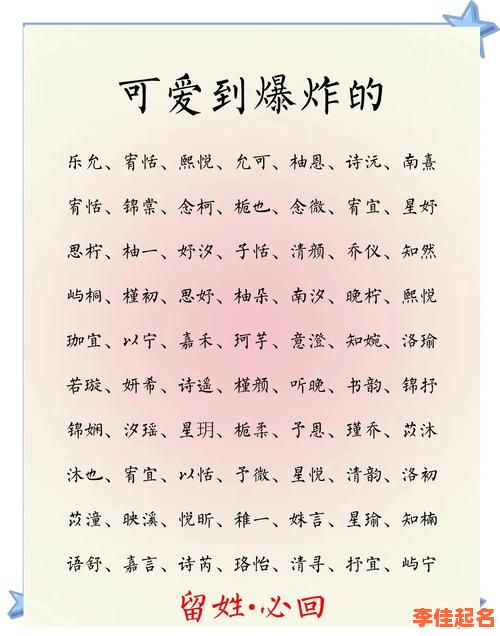 可爱到爆炸的
乐允、宥恬、熙悦、允可、柚恩、诗沅、南熹
宥恬、锦棠、念柯、栀也、念微、宥宜、星妤
思柠、柚一、妤汐、子恬、清颜、乔仪、知然
屿桐、槿初、思妤、柚朵、南汐、晚柠、熙悦
珈宜、以宁、嘉禾、珂芋、意澄、知婉、洛瑜
若璇、妍希、诗遥、槿颜、听晚、书韵、锦抒
锦娴、汐瑶、星玥、栀柔、予恩、瑾乔、苡沐
沐也、宥宜、以恬、予微、星悦、清韵、洛初
苡潼、映溪、悦昕、稚一、姝言、星瑜、知楠
语舒、嘉言、诗芮、珞怡、清寻、抒宜、屿宁
留姓·必回
李佳起名